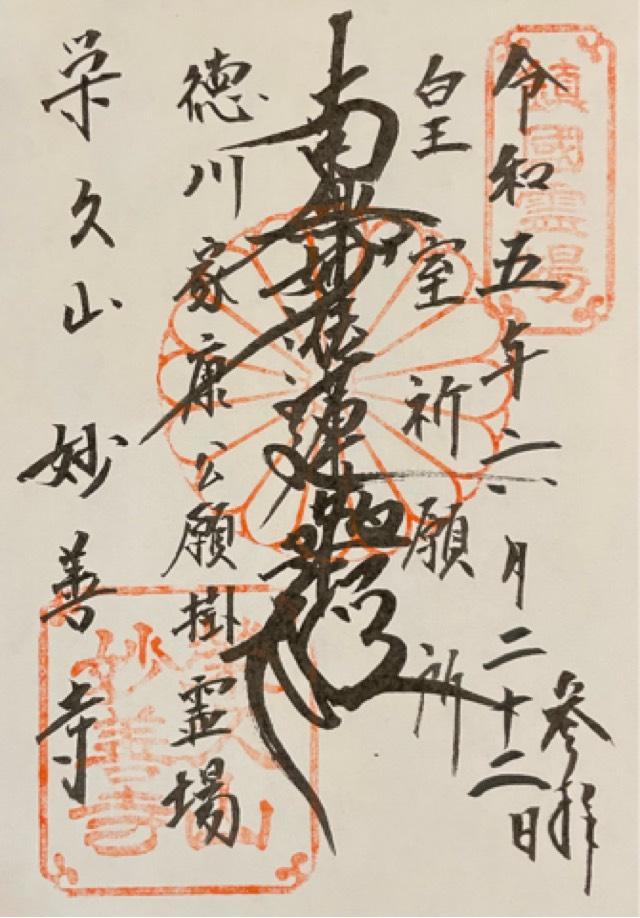 鎮國霊場
令和五年六月二十二日
参拝
皇室祈願所
南無妙法蓮華経
徳川家康公願掛霊場
栄久山
妙善寺
栄久山
妙善寺